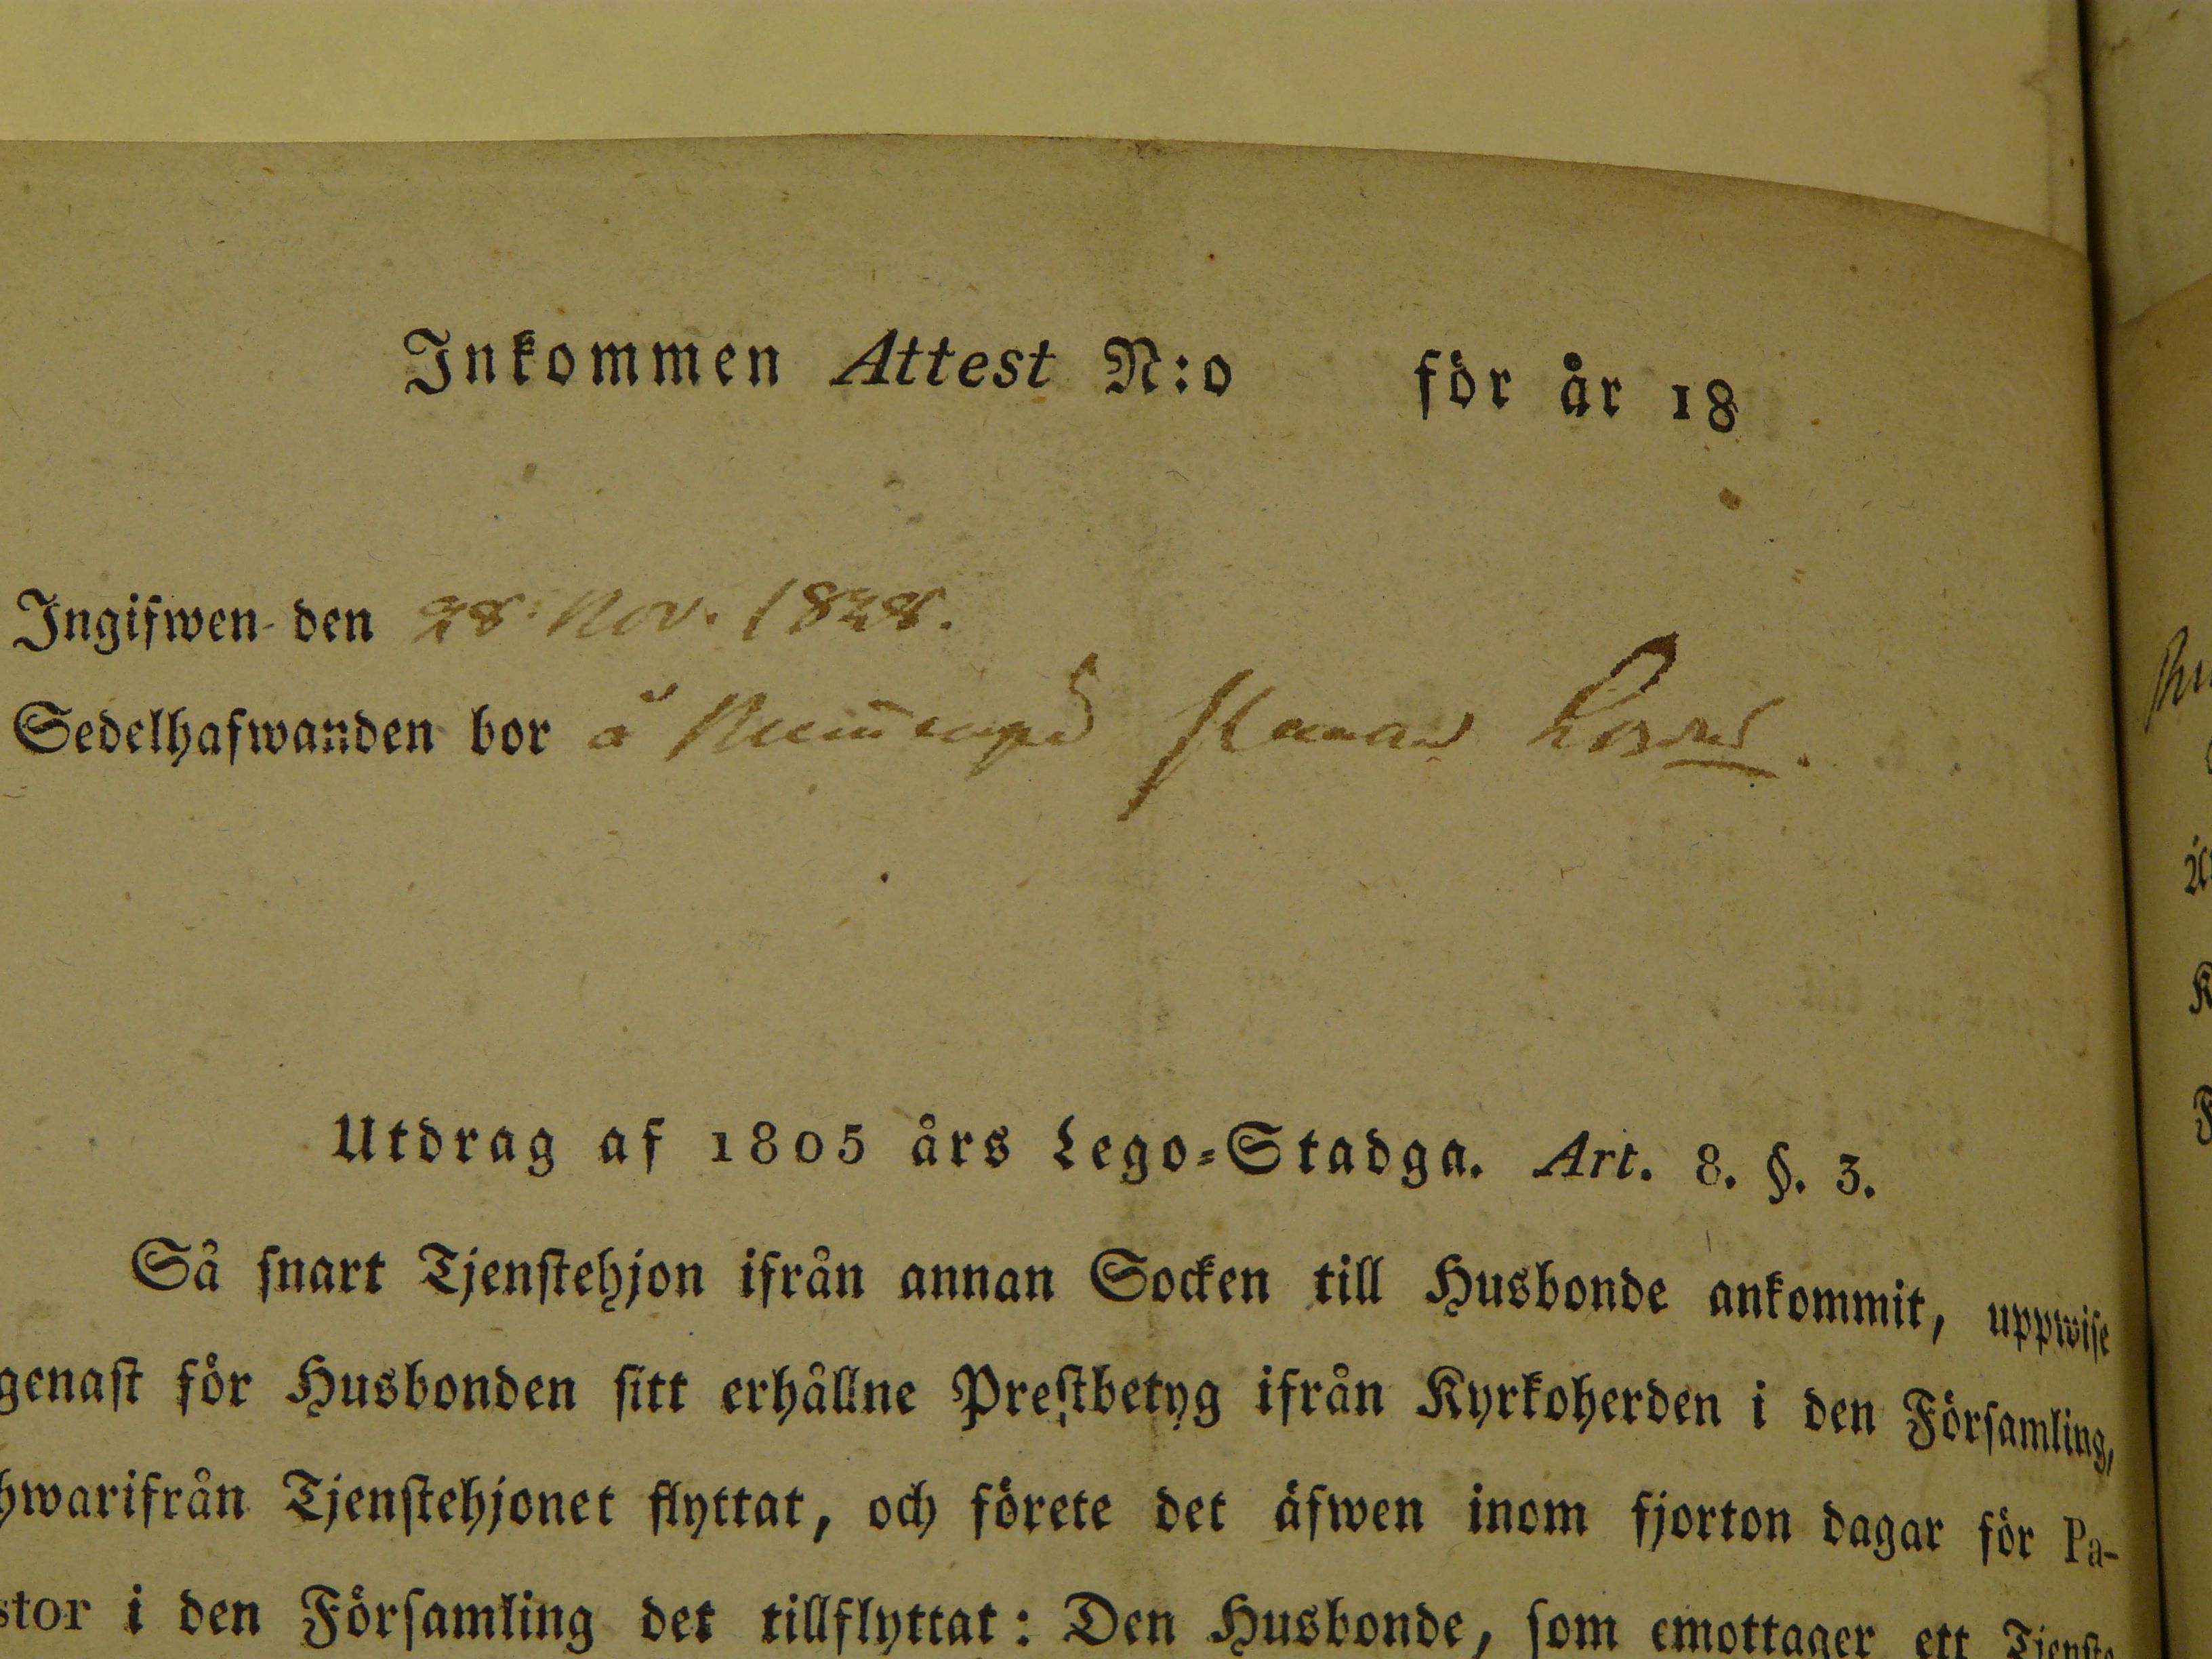 Inkommen Attest N:o för år 18
Ingifwen den 28 Nov. 1828.
Sedelhafwanden bor å
Utdrag af 1805 års Lego-Stadga. Art. 8. §. 3.
Så snart Tjenstehjon ifrån annan Socken till Husbonde ankommit, uppwise
genast för Husbonden sitt erhållne Prestbetyg ifrån Kyrkoherden i den Församling,
hwarifrån Tjenstehjonet flyttat, och förete det äfwen inom fjorton dagar för Pa-
stor i den Församling det tillflyttat: Den Husbonde, som emottager ett Tjenste